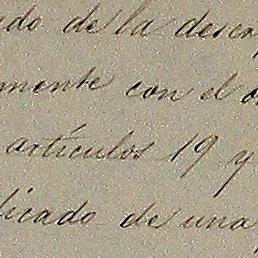 do de la desem
mente con el o
artículos 19 y
licado de una